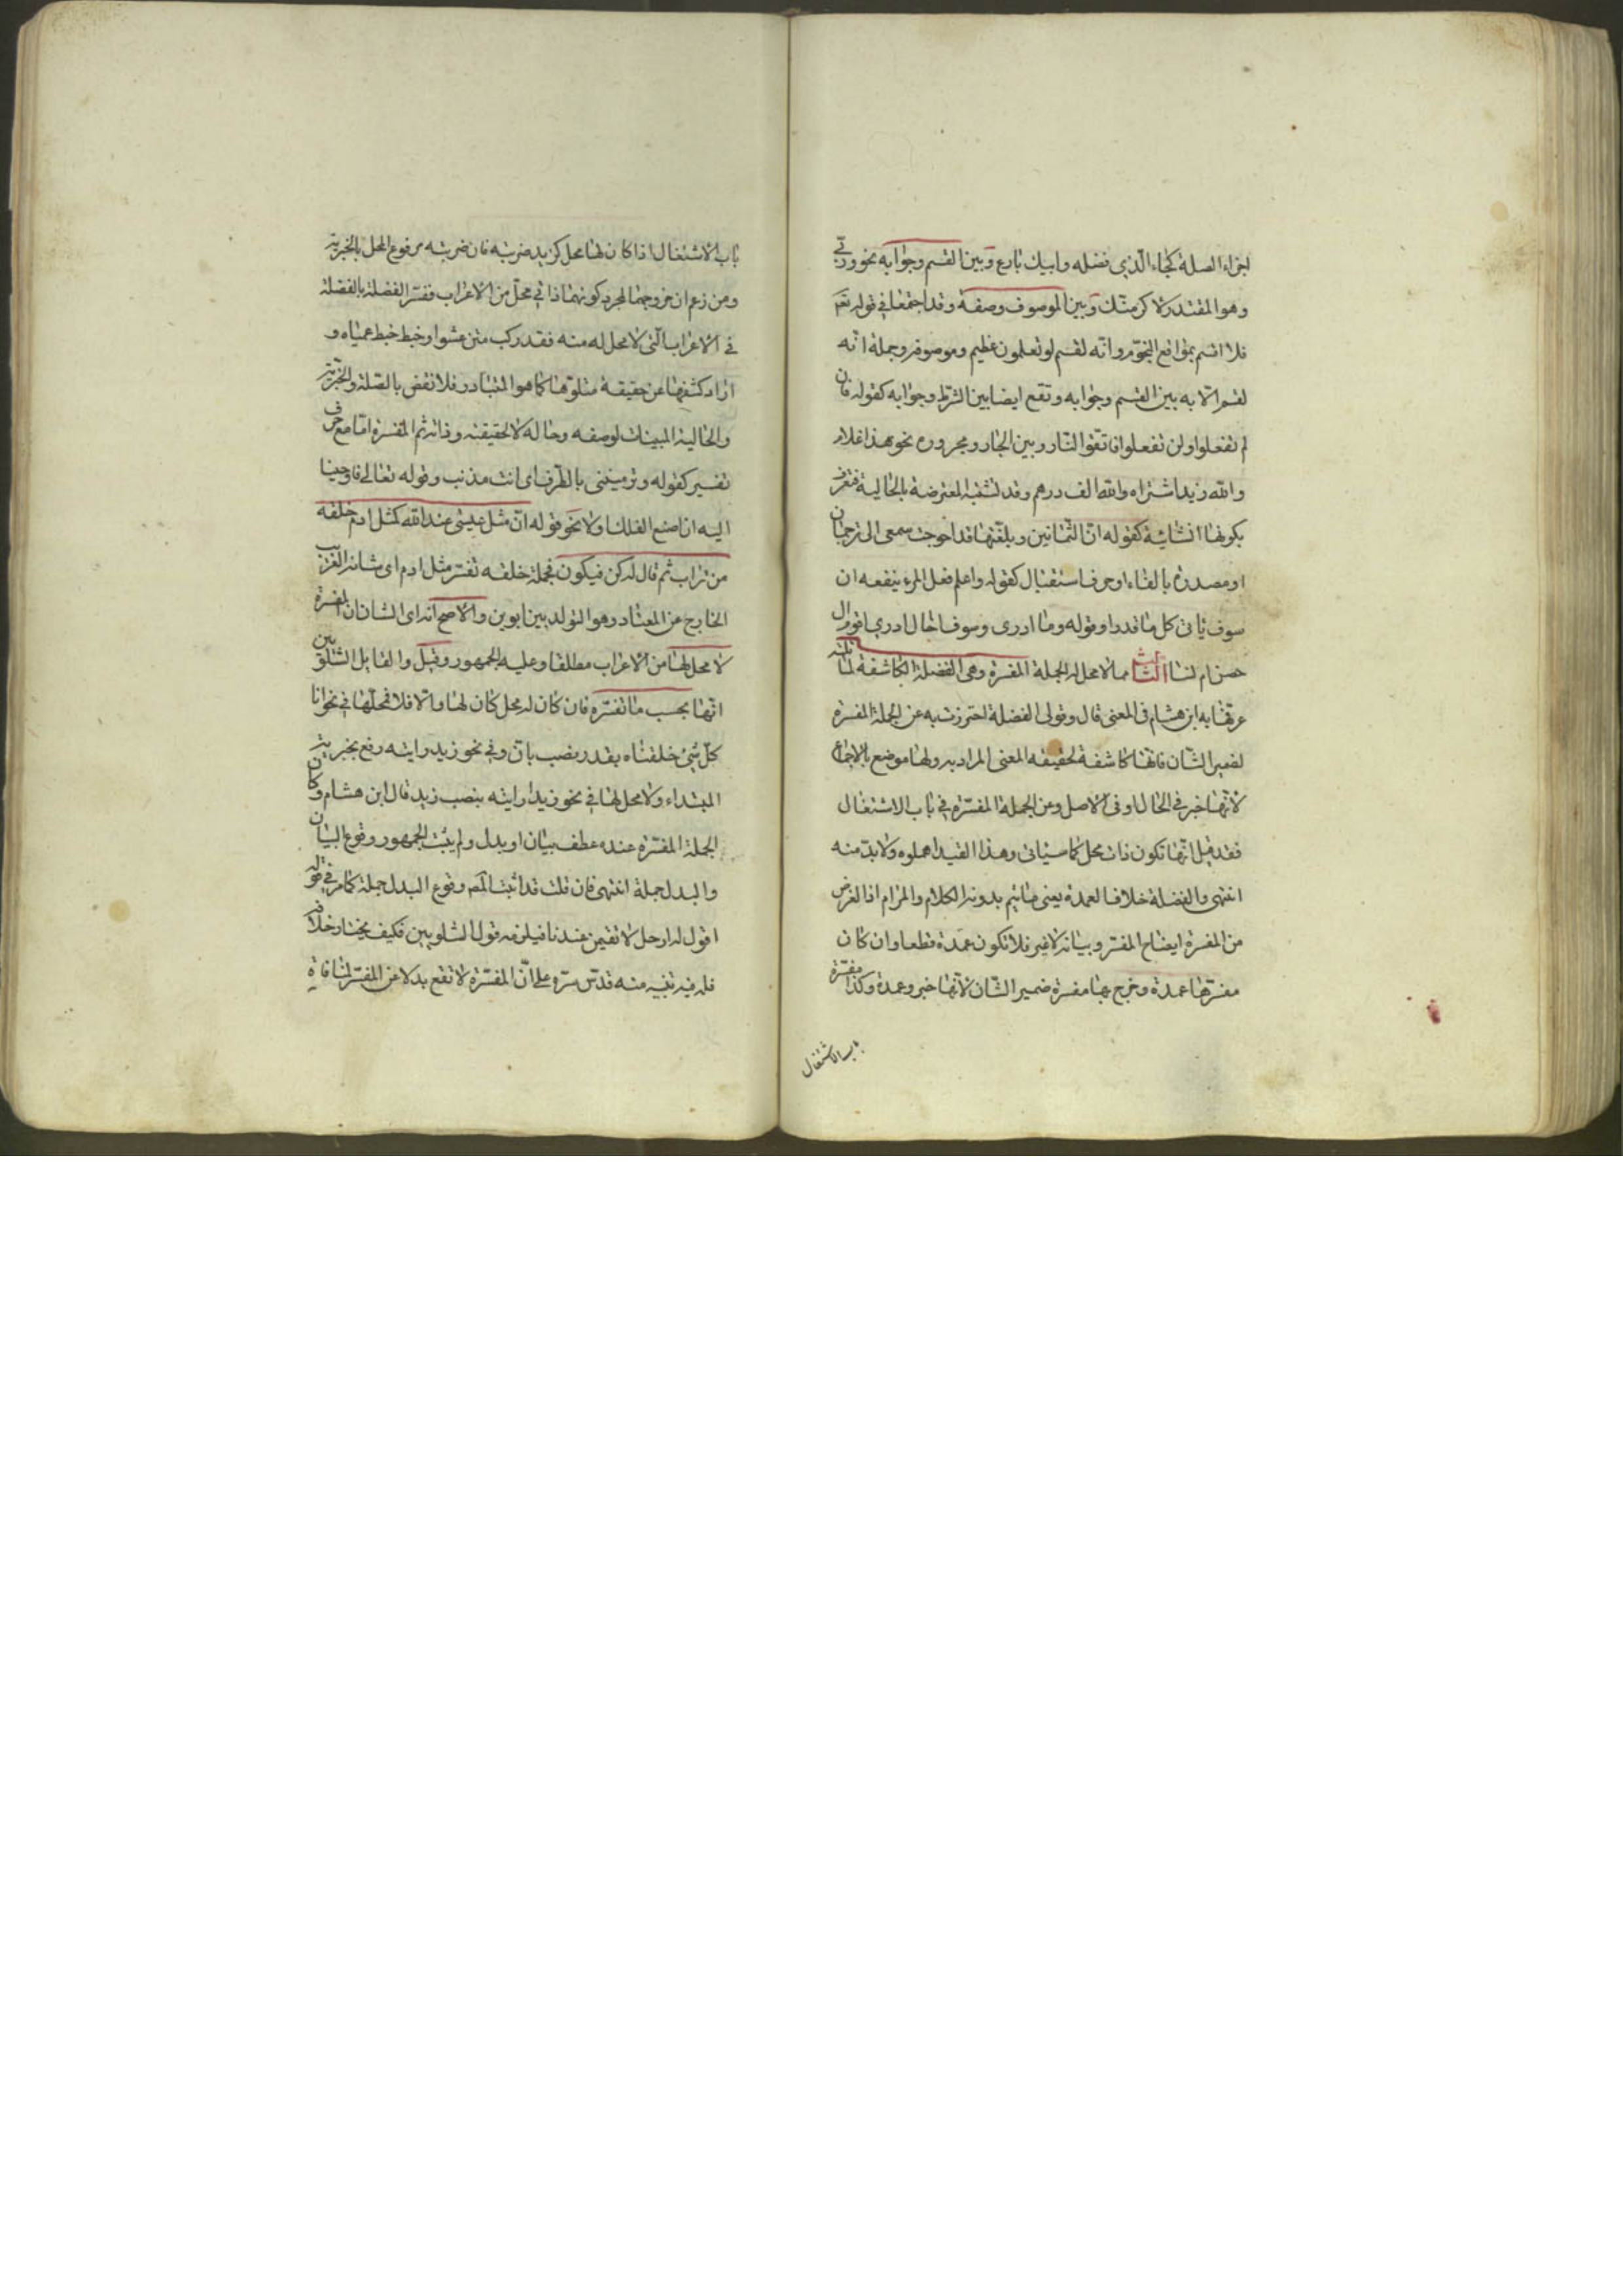 اجزاء الصلة كجاء الذي فضله وابيك بارع وبين القسم وجوابه نحو وربي
وهو المقتدر لاكرمنك وبين الموصوف وصفة وقد اجتمعا في قوله تعم
فلا اقسم بمواقع النجوم وانه لقسم لو تعلمون عظيم وجملة انه
لقسم الاية بين القسم وجوابه وتقع ايضا بين الشرط وجوابه كقوله فان
لم تفعلوا ولن تفعلوا فاتقوا النار وبين الجار ومجروره نحو هذا غلام
والله زيد اشتراه والله الف درهم وقد تشتبه المعترضة بالحالية
بكونها انشائية كقوله ان الثمانين وبلغتها قد احوجت سمعي الى ترجمان
او مصدرة بالفاء او حرف استقبال كقوله واعلم فعلم المرء ينفعه ان
سوف يأتي كل ما قدرا وقوله وما ادري وسوف اخال ادري اقوم ال
حصن ام نسا الثالثة مما لا محل له الجملة المفسرة وهي الفضلة الكاشفة لما تليه
عرفها به ابن هشام في المغني قال وقولي الفضلة احترزت به عن الجملة المفسرة
لضمير الشان فانها كاشفة لحقيقة المعنى المراد به ولها موضع بالاجماع
لانها خبر في الحال او في الاصل ومن الجملة المفسرة في باب الاشتغال
فقد قيل انها تكون ذات محل كما سيأتي وهذا القيد اهملوه ولا بد منه
انتهى والفضلة خلاف العمدة يعني ما يتم بدونه الكلام والمرام اذ الغرض
من المفسرة ايضاح المفسر وبيانه لا غير فلا تكون عمدة قطعا وان كان
مفسرها عمدة وخرج بها مفسرة ضمير الشان لانها خبر وعمدة وكذا مفسرة
باب الاشتغال
باب الاشتغال اذا كان لها محل كزيد ضربته فان ضربته مرفوع المحل بالخبرية
ومن زعم ان خروجها لمجرد كونها ذات محل من الاعراب ففسر الفضلة بالفضلة
في الاعراب التي لا محل له منه فقد ركب متن عشوا وخبط خبط عمياء و
اراد كشفها عن حقيقة متلوها كما هو المتبادر فلا نقض بالصلة والخبرية
والحالية المبينات لوصفه وحاله لا لحقيقته وذاته ثم المفسرة اما مع حرف
تفسير كقوله وترمينني بالطرف اي انت مذنب وقوله تعالى فاوحينا
اليه ان اصنع الفلك او لا نحو قوله ان مثل عيسى عند الله كمثل ادم خلقه
من تراب ثم قال له كن فيكون فجملة خلقه تفسر مثل ادم اي شانه الغريب
الخارج عن المعتاد وهو التولد بين ابوين والاصح انه اي الشان ان المفسرة
لا محل لها من الاعراب مطلقا وعليه الجمهور وقيل والقايل الشلوبين
انها بحسب ما تفسره فان كان له محل كان لها والا فلا فمحلها في نحو انا
كل شيء خلقناه بقدر نصب بان وفي نحو زيد رايته رفع بخبرية
المبتداء ولا محل لها في نحو زيدا رايته بنصب زيد قال ابن هشام وكان
الجملة المفسرة عنده عطف بيان او بدل ولم يثبت الجمهور وقوع البيان
والبدل جملة انتهى فان قلت قد اثبت المصـ وقوع البدل جملة كما مر في قوله
اقول له ارحل لا تقيمن عندنا فيلزمه قول الشلوبين فكيف يختار خلافه
قلت فيه تنبيه منه قدس سره على ان المفسرة لا تقع بدلا عن المفسر لمنافاة